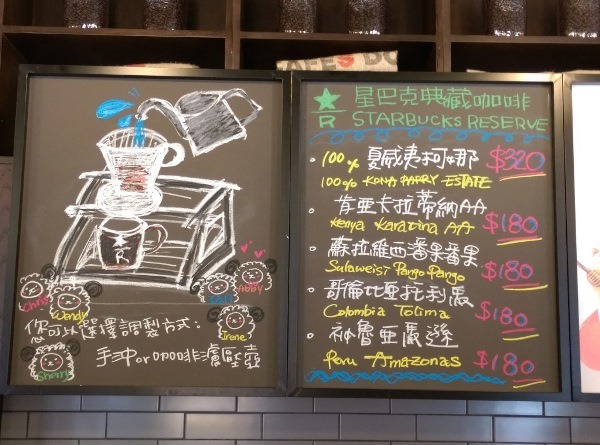 Chris
Wendy
Abby
Irene
Sherry
您可以選擇調製方式：
手沖or咖啡濾壓壺
R
星巴克典藏咖啡
STARBUCKS RESERVE
100% 夏威夷柯娜 $320
100% KONA PARRY ESTATE
肯亞卡拉蒂納AA $180
Kenya Karatina AA
蘇拉維西番果番果 $180
Sulawesi Pango-Pango
哥倫比亞托利馬 $180
Colombia Tolima
祕魯亞馬遜 $180
Peru AMAZONAS